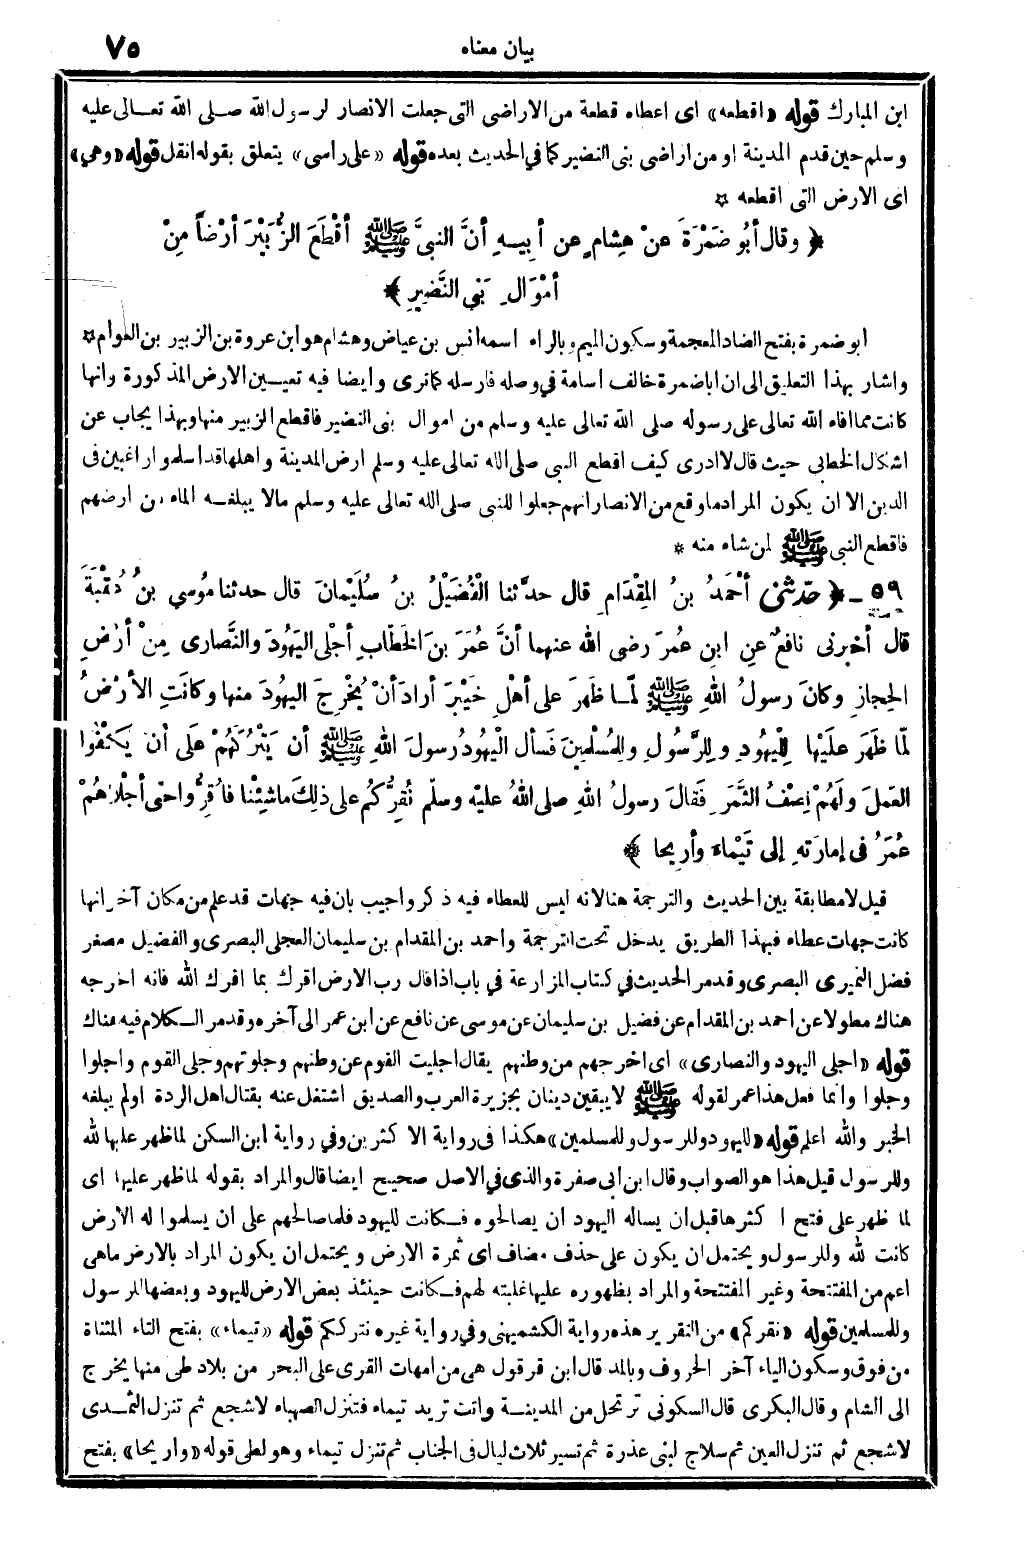 بيان معناه
٧٥
ابن المبارك قوله «اقطعه» اى اعطاه قطعة من الاراضى التى جعلت الانصار لرسول الله صلى الله تعالى عليه
وسلم حين قدم المدينة او من اراضى بنى النضير كما في الحديث بعده قوله «على راسى» يتعلق بقوله انقل قوله «وهي»
اى الارض التى اقطعه ☆
﴿ وقال أبُو ضَمْرَةَ عنْ هِشامٍ عن أبِيهِ أنَّ النبيَّ ﷺ أقْطَعَ الزُّبَيْرَ أرْضاً مِنْ
أمْوَالِ بَنِي النَّضِيرِ ﴾
ابو ضمرة بفتح الضاد المعجمة وسكون الميم وبالراء اسمه انس بن عياض وهشام هو ابن عروة بن الزبير بن العوام ☆
واشار بهذا التعليق الى ان ابا ضمرة خالف اسامة في وصله فارسله كما ترى وايضا فيه تعيين الارض المذكورة وانها
كانت مما افاء الله تعالى على رسوله صلى الله تعالى عليه وسلم من اموال بنى النضير فاقطع الزبير منها وبهذا يجاب عن
اشكال الخطابى حيث قال لا ادرى كيف اقطع النبى صلى الله تعالى عليه وسلم ارض المدينة واهلها قد اسلموا راغبين فى
الدين الا ان يكون المراد ما وقع من الانصار انهم جعلوا للنبى صلى الله تعالى عليه وسلم مالا يبلغه الماء من ارضهم
فاقطع النبى ﷺ لمن شاء منه ☆
٥٩ ـ ﴿ حَدَّثَنِى أحْمَدُ بنُ المِقْدَامِ قال حدَّثنا الْفُضَيْلُ بنُ سُلَيْمَانَ قال حدثنا مُوسي بنُ عُقْبَةَ
قال أخبرنى نافعٌ عنِ ابنِ عُمرَ رضى الله عنهما أنَّ عُمَرَ بنَ الخَطَّابِ أجْلَى اليَهُودَ والنَّصارى مِنْ أرْضِ
الحِجازِ وكانَ رسولُ اللهِ ﷺ لَمَّا ظَهَرَ على أهْلِ خَيْبَرَ أرادَ أنْ يُخْرِجَ اليهُودَ منها وكانَتِ الأرْضُ
لَمَّا ظَهَرَ علَيْها لِلْيهُودِ ولِلرَّسُولِ ولِلْمُسْلِمِينَ فَسأل اليَهُودُ رسولَ اللهِ ﷺ أن يَتْرُكَهُمْ علَى أنْ يَكْفُوا
العَمَلَ ولَهُمْ نِصْفُ الثَّمَرِ فَقالَ رسولُ اللهِ صلى اللهُ عليْه وسلَّم نُقِرُّكُمْ على ذلِكَ ماشِئْنا فأُقِرُّوا حتى أجْلاهُمْ
عُمَرُ فى إمارَتهِ إلى تَيْماءَ وأرِيحا ﴾
قيل لا مطابقة بين الحديث والترجمة هنا لانه ليس للعطاء فيه ذكر واجيب بان فيه جهات قد علم من مكان آخر انها
كانت جهات عطاء فبهذا الطريق يدخل تحت الترجمة واحمد بن المقدام بن سليمان العجلى البصرى والفضيل مصغر
فضل النميرى البصرى وقد مر الحديث في كتاب المزارعة في باب اذا قال رب الارض اقرك بما اقرك الله فانه اخرجه
هناك مطولا عن احمد بن المقدام عن فضيل بن سليمان عن موسى عن نافع عن ابن عمر الى آخره وقد مر الكلام فيه هناك
قوله «اجلى اليهود والنصارى» اى اخرجهم من وطنهم يقال اجليت القوم عن وطنهم وجلوتهم وجلى القوم واجلوا
وجلوا وانما فعل هذا عمر لقوله ﷺ لا يبقين دينان بجزيرة العرب والصديق اشتغل عنه بقتال اهل الردة اولم يبلغه
الخبر والله اعلم قوله «لليهود وللرسول وللمسلمين» هكذا فى رواية الاكثرين وفي رواية ابن السكن لما ظهر عليها لله
وللرسول قيل هذا هو الصواب وقال ابن ابى صفرة والذى في الاصل صحيح ايضا قال والمراد بقوله لما ظهر عليها اى
لما ظهر على فتح اكثرها قبل ان يساله اليهود ان يصالحوه فكانت لليهود فلما صالحهم على ان يسلموا له الارض
كانت لله وللرسول ويحتمل ان يكون على حذف مضاف اى ثمرة الارض ويحتمل ان يكون المراد بالارض ماهى
اعم من المفتتحة وغير المفتتحة والمراد بظهوره عليها غلبته لهم فكانت حينئذ بعض الارض لليهود وبعضها للرسول
وللمسلمين قوله «نقركم» من التقرير هذه رواية الكشميهنى وفي رواية غيره نترككم قوله «تيماء» بفتح التاء المثناة
من فوق وسكون الياء آخر الحروف وبالمد قال ابن قرقول هى من امهات القرى على البحر من بلاد طى منها يخرج
الى الشام وقال البكرى قال السكونى ترتحل من المدينة وانت تريد تيماء فتنزل الصهباء لاشجع ثم تنزل الثمدى
لاشجع ثم تنزل العين ثم سلاج لبنى عذرة ثم تسير ثلاث ليال فى الجناب ثم تنزل تيماء وهو لطى قوله «واريحا» بفتح